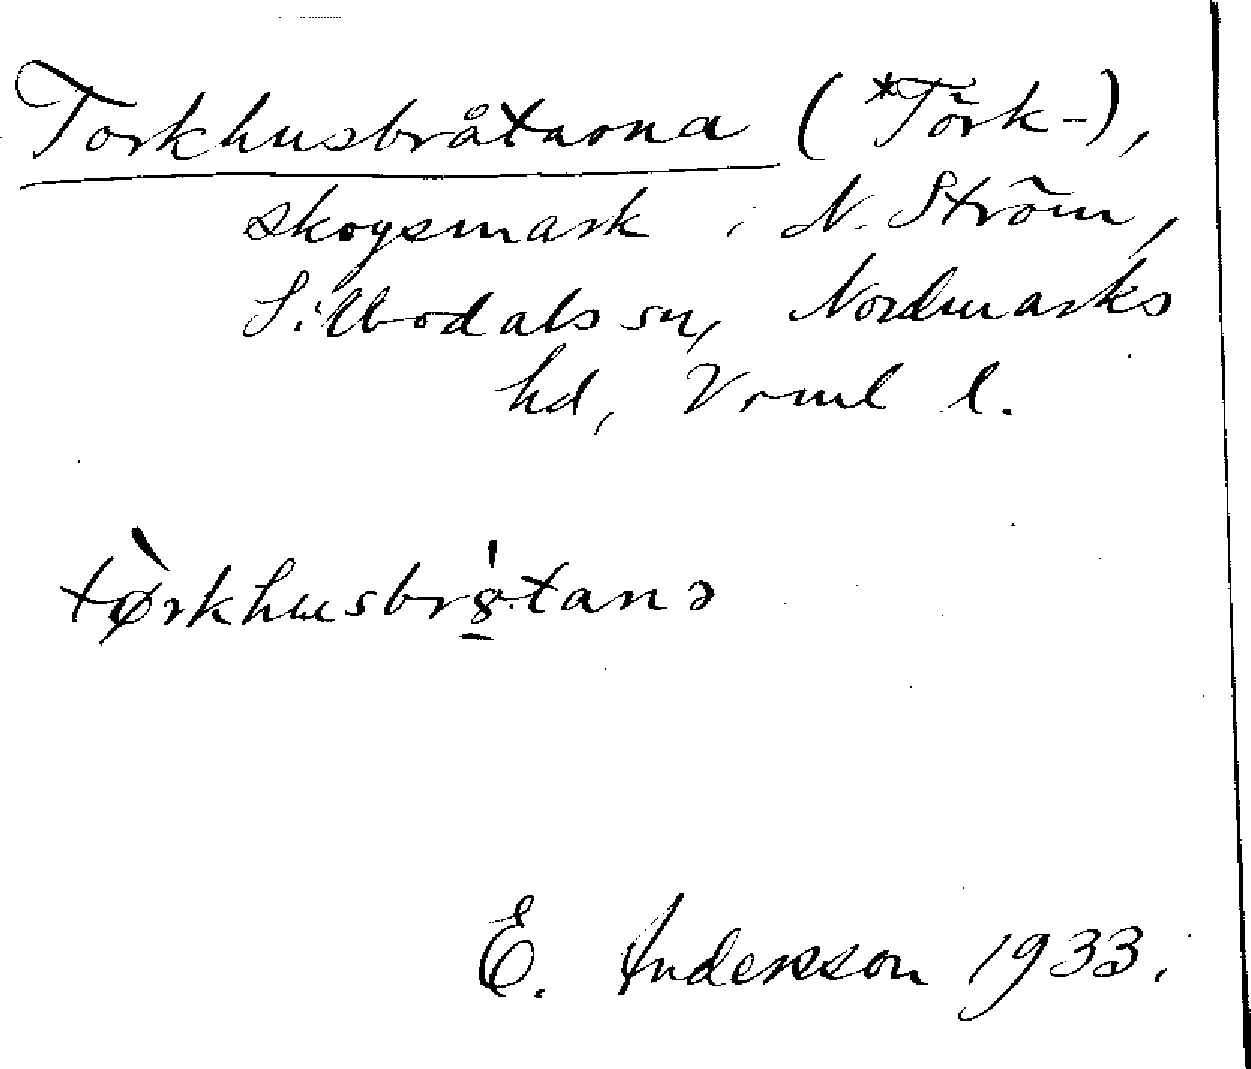 Torkhusbråtarna (*Törk-),
skogsmark i N. Ström,
Sillbodals sn, Nordmarks
hd, Vrml l.
tø̀rkhusbrɔ̀tanɔ
E. Andersson 1933.